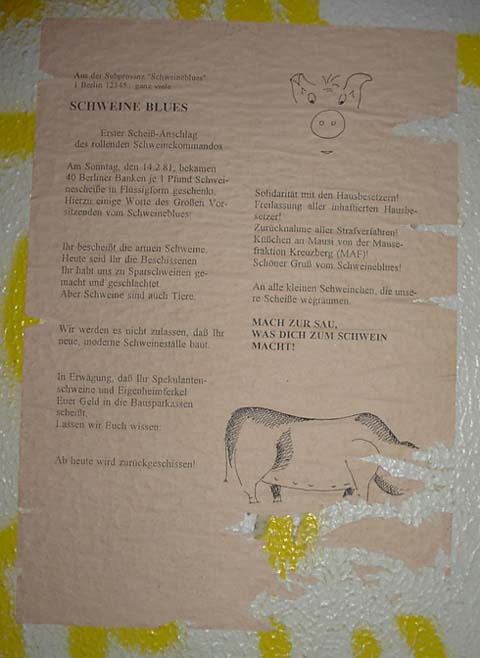 Aus der Subprovinz "Schweineblues"
1 Berlin 12345 ganz viele
SCHWEINE BLUES
Erster Scheiß-Anschlag
des rollenden Schweinekommandos
Am Sonntag, den 14.2.81, bekamen
40 Berliner Banken je 1 Pfund Schwei-
nescheiße in Flüssigform geschenkt.
Hierzu einige Worte des Großen Vor-
sitzenden vom Schweineblues:
Ihr bescheißt die armen Schweine.
Heute seid Ihr die Beschissenen
Ihr habt uns zu Sparschweinen ge-
macht und geschlachtet.
Aber Schweine sind auch Tiere.
Wir werden es nicht zulassen, daß Ihr
neue, moderne Schweineställe baut.
In Erwägung, daß Ihr Spekulanten-
schweine und Eigenheimferkel
Euer Geld in die Bausparkassen
scheißt,
Lassen wir Euch wissen:
Ab heute wird zurückgeschissen!
Solidarität mit den Hausbesetzern!
Freilassung aller inhaftierten Hausbe-
setzer!
Zurücknahme aller Strafverfahren!
Küßchen an Mausi von der Mause-
fraktion Kreuzberg (MAF)!
Schöner Gruß vom Schweineblues!
An alle kleinen Schweinchen, die unse-
re Scheiße wegräumen.
MACH ZUR SAU,
WAS DICH ZUM SCHWEIN
MACHT!